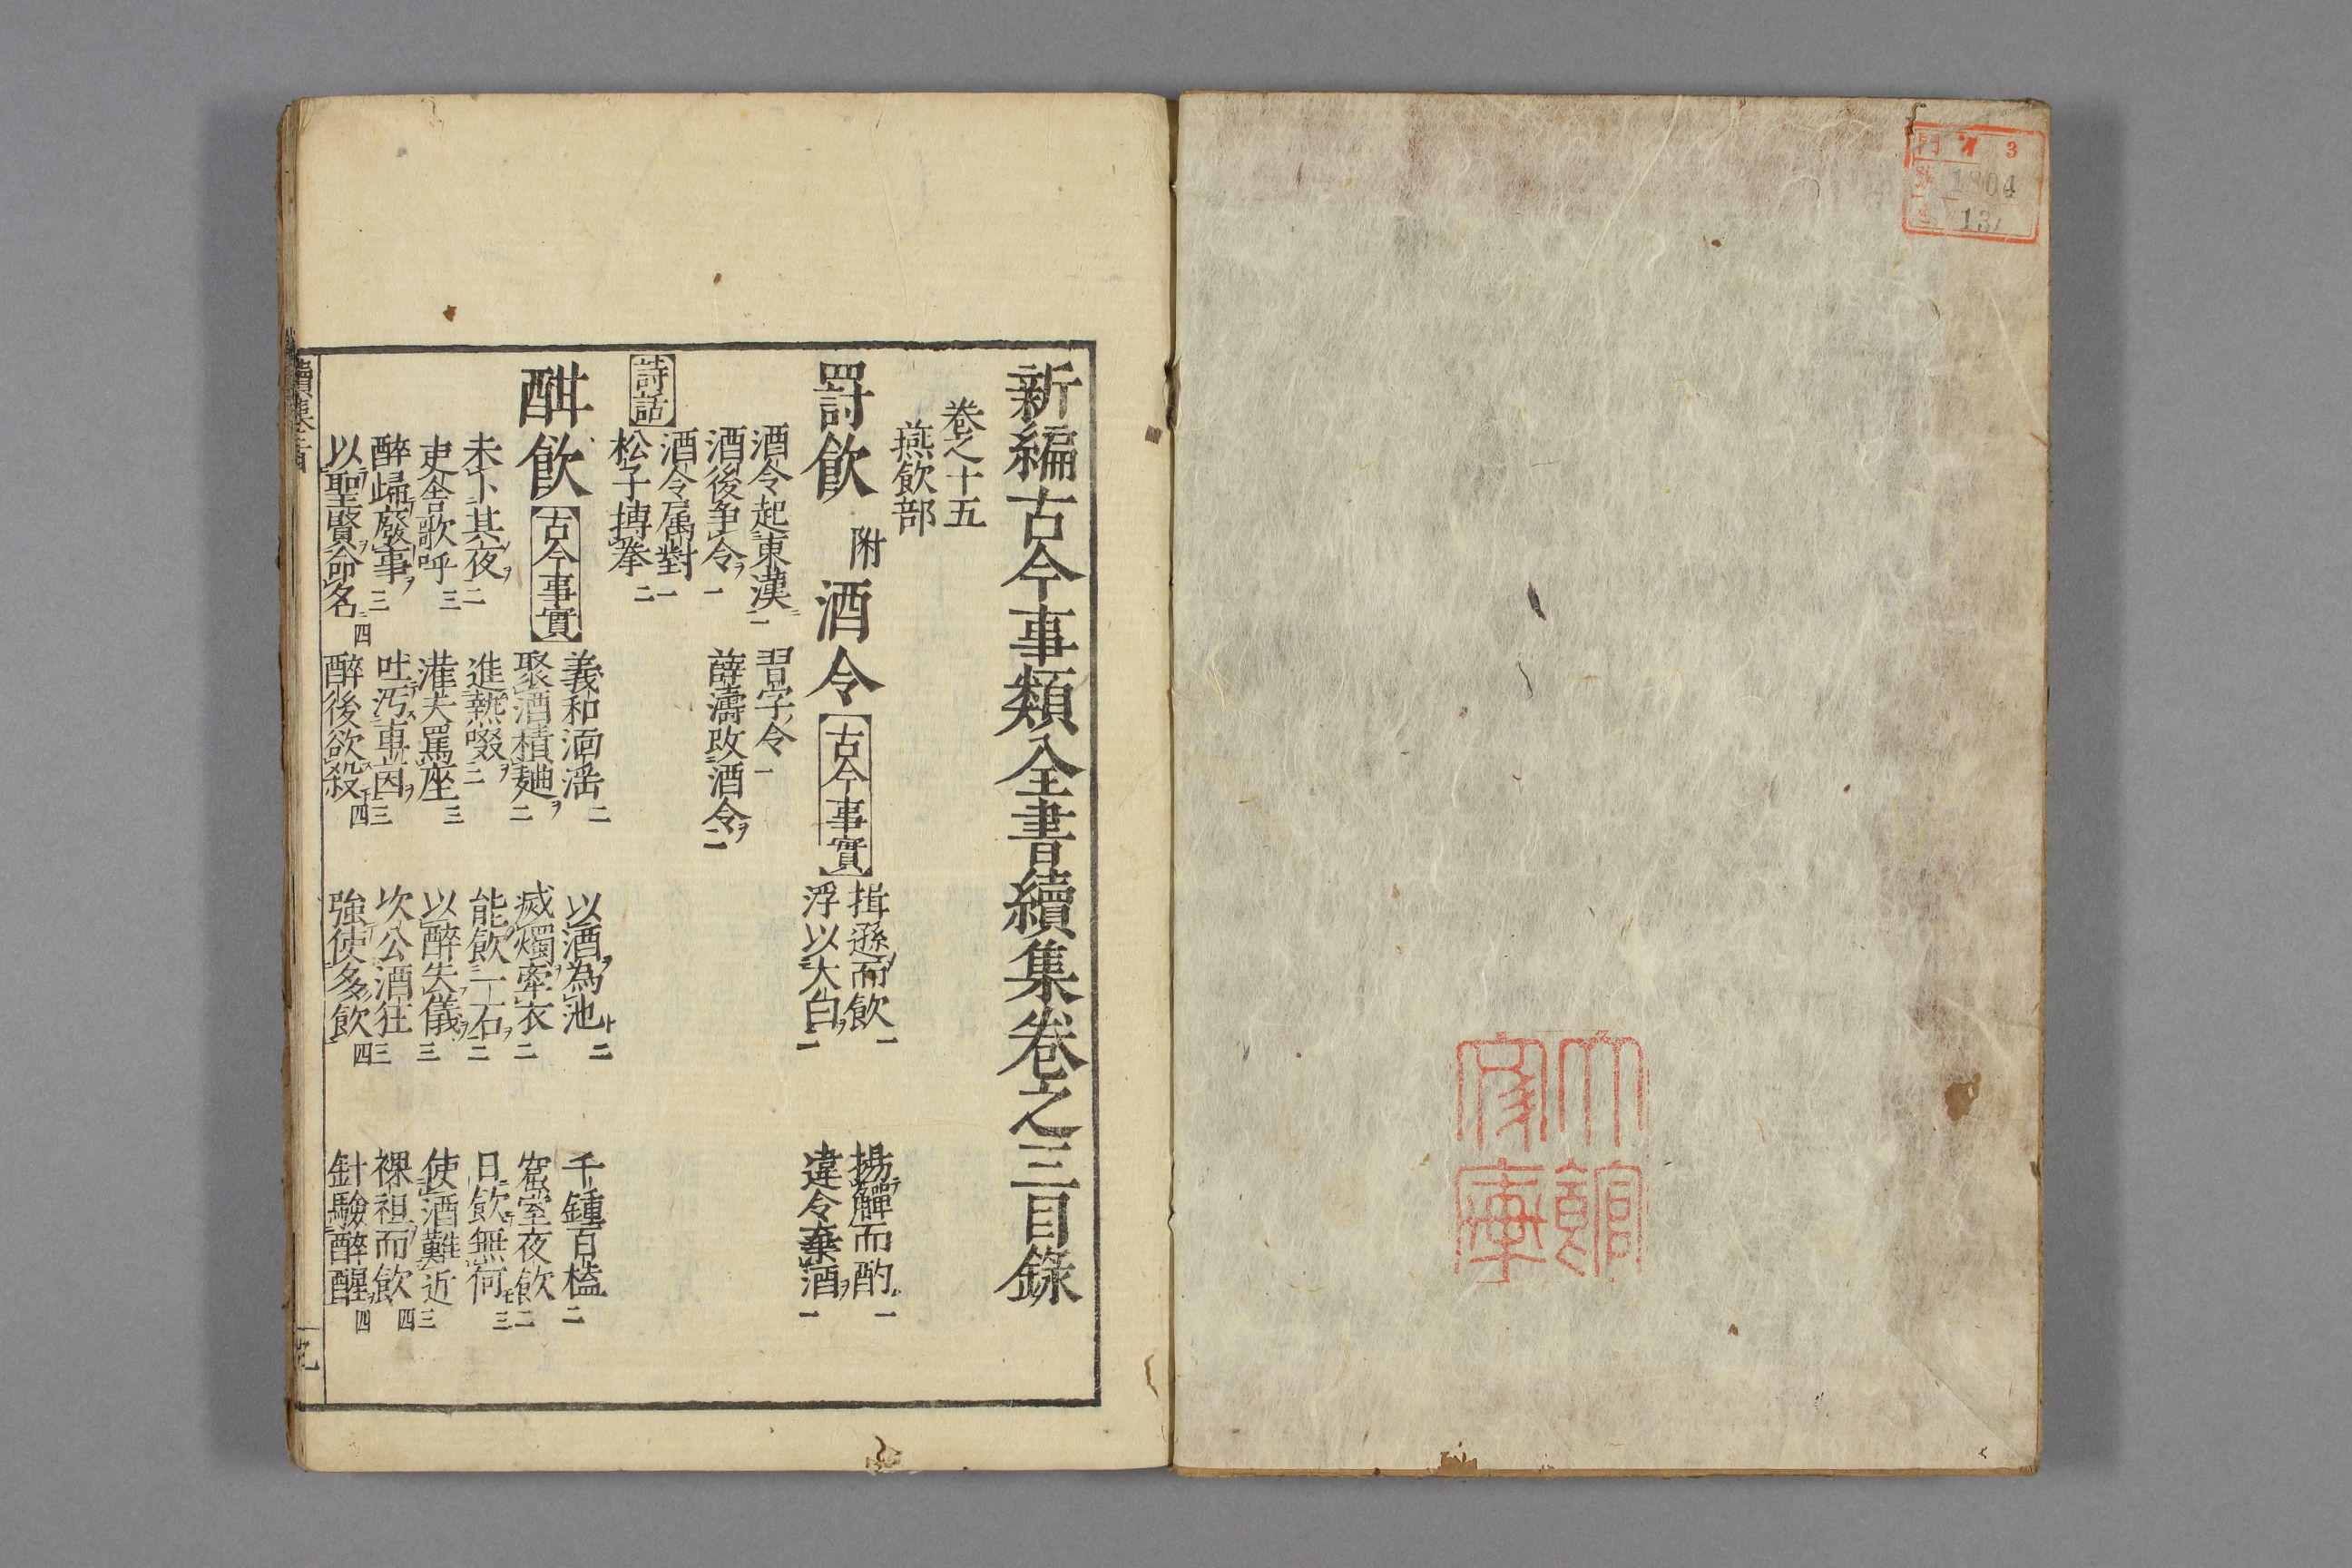 3
1804
137
新編古今事類全書續集卷之三目錄
卷之十五
燕飲部
罰飲 附 酒令 古今事實 揖遜而飲 一 揚觶而酌 一
浮以大白 一 違令棄酒 一
酒令起東漢 一 習字令 一
酒後争令 一 薛濤改酒令 二
酒令属對 一
詩話 松子摶拳 二
酣飲 古今事實 義和湎淫 二 以酒為池 二 千鍾百榼 二
聚酒積麯 二 滅燭牽衣 二 窟室夜飲 二
未卜其夜 二 進熱啜 二 能飲一石 二 日飲無何 三
吏舍歌呼 三 灌夫罵座 三 以醉失儀 三 使酒難近 三
醉歸廢事 三 吐汚車茵 三 次公酒狂 三 裸袒而飲 四
以聖賢命名 四 醉後欲殺 四 強使多飲 四 針驗醉醒 四